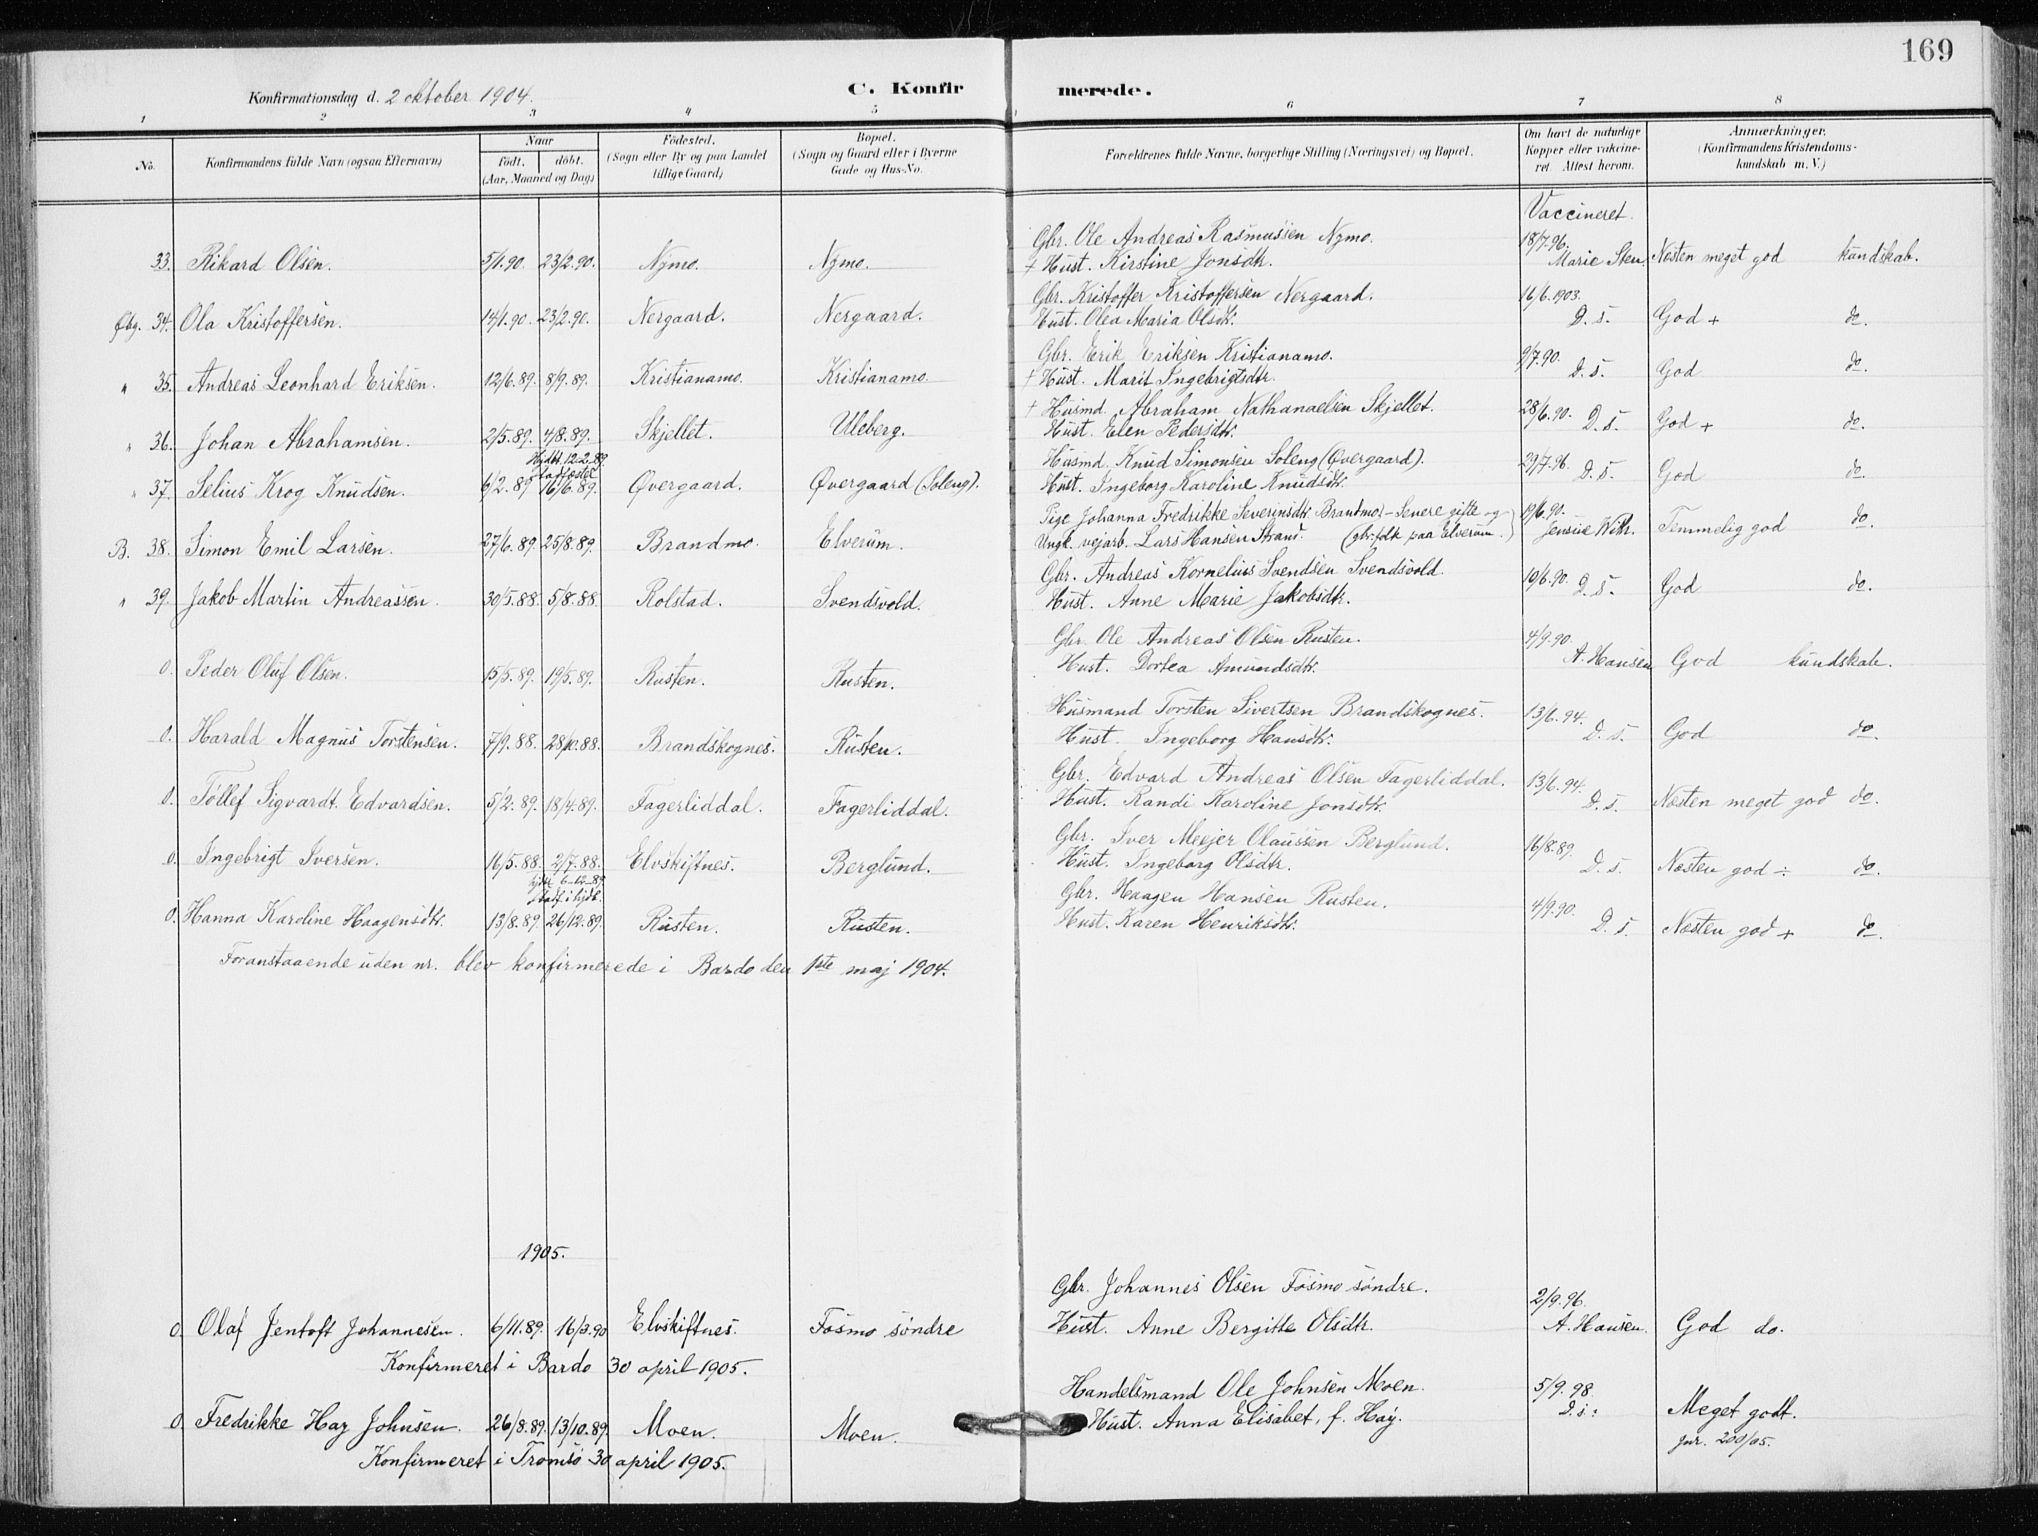 169
Konfirmationsdag d. 2 oktober 1904. C. Konfirmerede.
1 2 3 4 5 6 7 8
No. Konfirmandens fulde Navn (ogsaa Efternavn) Naar födt. döbt. (Aar, Maaned og Dag) Födested. (Sogn eller By og paa Landet tillige Gaard) Bopæl. (Sogn og Gaard eller i Byerne Gade og Hus-No. Forældrenes fulde Navne, borgerlige Stilling (Næringsvei) og Bopæl. Om havt de naturlige Kopper eller vakcineret. Attest herom. Anmærkninger. (Konfirmandens Kristendomskundskab m. V.)
Vaccineret.
Gbr. Ole Andreas Rasmussen Nymo. 18/7.96.
33. Rikard Olsen. 5/1.90. 23/2.90. Nymo. Nymo. † Hust. Kirstine Jonsdtr. Marie Sten. Næsten meget god kundskab.
Gbr. Kristoffer Kristoffersen Nergaard. 16/6.1903.
Øbg. 34. Ola Kristoffersen. 14/1.90. 23/2.90. Nergaard. Nergaard. Hust. Olea Maria Olsdtr. D. s. God + do.
Gbr. Erik Eriksen Kristianamo. 9/7.90.
" 35. Andreas Leonhard Eriksen. 12/6.89. 8/9.89. Kristianamo. Kristianamo. † Hust. Marit Ingebrigtsdtr. D. s. God do.
† Husmd. Abraham Nathanaelsen Skjellet. 28/6.90.
" 36. Johan Abrahamsen. 2/5.89. 4/8.89. Skjellet. Uleberg. Hust. Elen Pedersdtr. D. s. God + do.
Hjdbt. 12-2-89. stadfæstet Husmd. Knud Simonsen Soleng (Øvergaard). 29/7.96.
" 37. Selius Krog Knudsen. 6/2.89 16/6.89. Øvergaard. Øvergaard (Soleng). Hust. Ingeborg Karoline Knudsdtr. D. s. God do.
Pige Johanna Fredrikke Severinsdtr. Brandmo - Senere gifte og 19/6.90.
B. 38. Simon Emil Larsen. 27/6.89. 25/8.89. Brandmo. Elverum. Ungk. vejarb. Lars Hansen Strand. (gbr.folk paa Elverum.) Jensine Wilh. Temmelig god do.
Gbr. Andreas Kornelius Svendsen Svendsvold. 19/6.90.
" 39. Jakob Martin Andreassen. 30/5.88. 5/8.88. Rolstad. Svendsvold. Hust. Anne Marie Jakobsdtr. D. s. God do.
Gbr. Ole Andreas Olsen Rusten. 4/9.90.
0. Peder Oluf Olsen. 15/5.89. 19/5.89. Rusten. Rusten. Hust. Dortea Amundsdtr. A. Hansen God kundskab.
Husmand Torsten Sivertsen Brandskognes. 13/6.94.
0. Harald Magnus Torstensen. 7/9.88. 28/10.88. Brandskognes. Rusten. Hust. Ingeborg Hansdtr. D. s. God do.
Gbr. Edvard Andreas Olsen Fagerliddal. 13/6.94.
0. Töllef Sigvardt Edvardsen. 5/2.89. 18/4.89. Fagerliddal. Fagerliddal. Hust. Randi Karoline Jonsdtr. D. s. Næsten meget god do.
Gbr. Iver Meejer Olaussen Berglund. 16/8.89.
0. Ingebrigt Iversen. 16/5.88. 2/7.88. Elvskiftnes. Berglund. Hust. Ingeborg Olsdtr. D. s. Næsten god ÷ do.
6-12-89. Stadf. i hjdt. Gbr. Haagen Hansen Rusten. 4/9.90.
0. Hanna Karoline Haagensdtr. 13/8.89. 26/12.89. Rusten. Rusten. Hust. Karen Henriksdtr. D. s. Næsten god + do.
Foranstaaende uden nr. blev konfirmerede i Bardo den 1ste maj 1904.
1905.
Gbr. Johannes Olsen Fosmo söndre. 2/9.96.
0. Olaf Jentoft Johannesen. 6/11.89. 16/3.90 Elvskiftnes. Fosmo söndre Hust. Anne Bergitte Olsdtr. A. Hansen. God do.
Konfirmeret i Bardo 30 april 1905.
Handelsmand Ole Johnsen Moen. 5/9.98.
0. Fredrikke Hay Johnsen. 26/8.89. 13/10.89. Moen. Moen. Hust. Anna Elisabet, f. Hay. D. s. Meget godt.
Konfirmeret i Tromsö 30 april 1905. Jnr. 200/05.